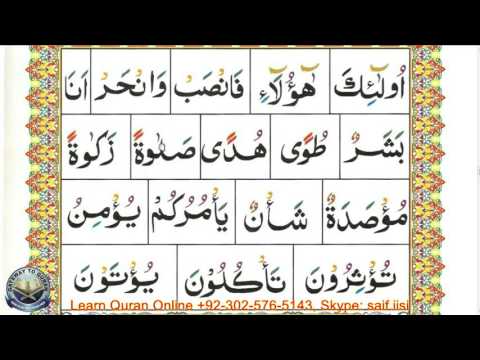 اُولٰٓئِكَ هٰٓؤُلَآءِ فَانْصَبْ وَانْحَرْ اَنَا
بَشَرٌ طُوًى هُدًى صَلٰوةً زَكٰوةً
مُؤْصَدَةٌ شَأْنٌ يَأْمُرُكُمْ يُؤْمِنُ
تُؤْثِرُونَ تَأْكُلُوْنَ يُؤْتَوْنَ
Learn Quran Online +92-302-576-5143, Skype: saif.iisi